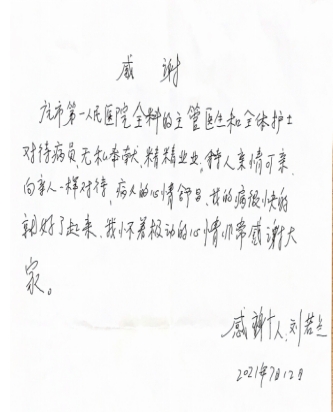 感 谢
市第一人民医院全科的主管医生和全体护士
对待病员,无私奉献、精精业业。种人亲情可亲,
向亲人一样对待,病人的心情舒畅、我的病很快的
就好了起来,我怀着极动的心情非常感谢大
家。
感谢人:刘若
2021年7月12日